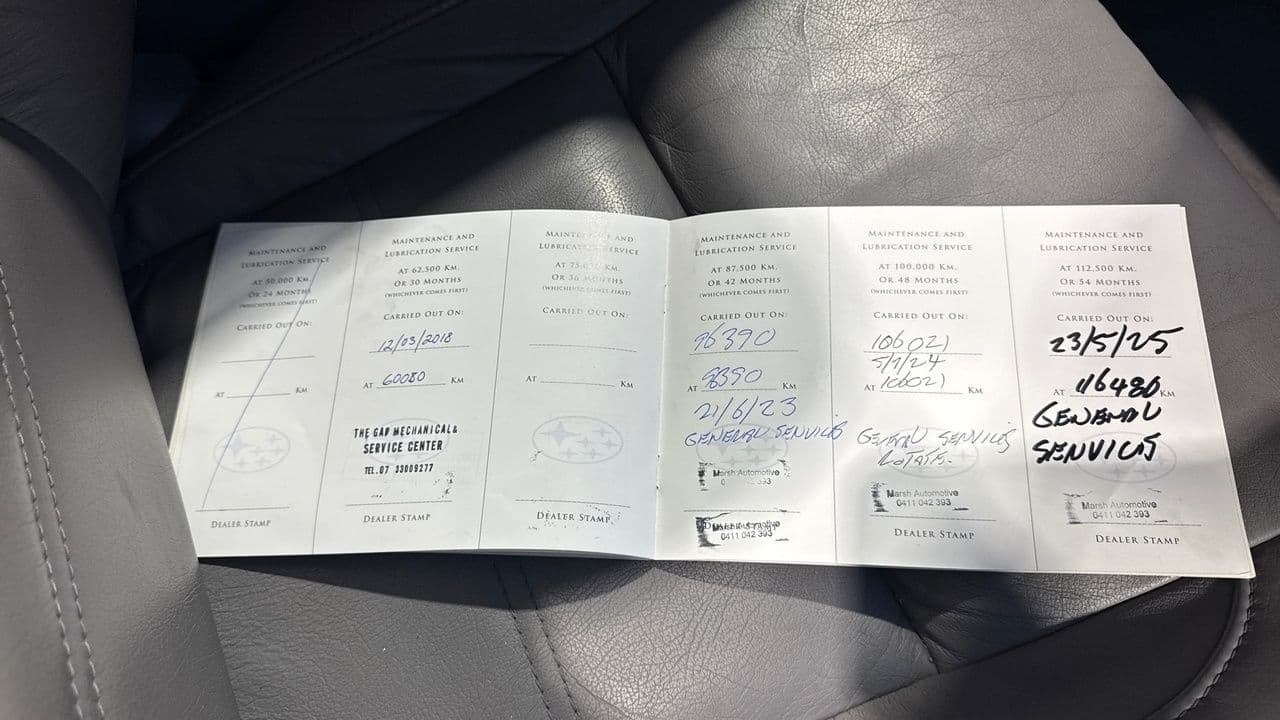 MAINTENANCE AND
LUBRICATION SERVICE
AT 50,000 KM.
OR 24 MONTHS
(WHICHEVER COMES FIRST)
CARRIED OUT ON:
AT KM
DEALER STAMP
MAINTENANCE AND
LUBRICATION SERVICE
AT 62,500 KM.
OR 30 MONTHS
(WHICHEVER COMES FIRST)
CARRIED OUT ON:
12/03/2018
AT 60080 KM
THE GAP MECHANICAL &
SERVICE CENTER
TEL. 07 33009277
DEALER STAMP
MAINTENANCE AND
LUBRICATION SERVICE
AT 75,000 KM.
OR 36 MONTHS
(WHICHEVER COMES FIRST)
CARRIED OUT ON:
AT KM
DEALER STAMP
MAINTENANCE AND
LUBRICATION SERVICE
AT 87,500 KM.
OR 42 MONTHS
(WHICHEVER COMES FIRST)
CARRIED OUT ON:
96390
AT KM
21/6/23
GENERAL SERVICE
Marsh Automotive
Marsh Automotive
0411 042 393
MAINTENANCE AND
LUBRICATION SERVICE
AT 100,000 KM.
OR 48 MONTHS
(WHICHEVER COMES FIRST)
CARRIED OUT ON:
106021
AT 106021 KM
GENERAL SERVICE
ROTATE.
Marsh Automotive
0411 042 393
DEALER STAMP
MAINTENANCE AND
LUBRICATION SERVICE
AT 112,500 KM.
OR 54 MONTHS
(WHICHEVER COMES FIRST)
CARRIED OUT ON:
23/5/25
AT 116480 KM
GENERAL
SERVICE
Marsh Automotive
0411 042 393
DEALER STAMP